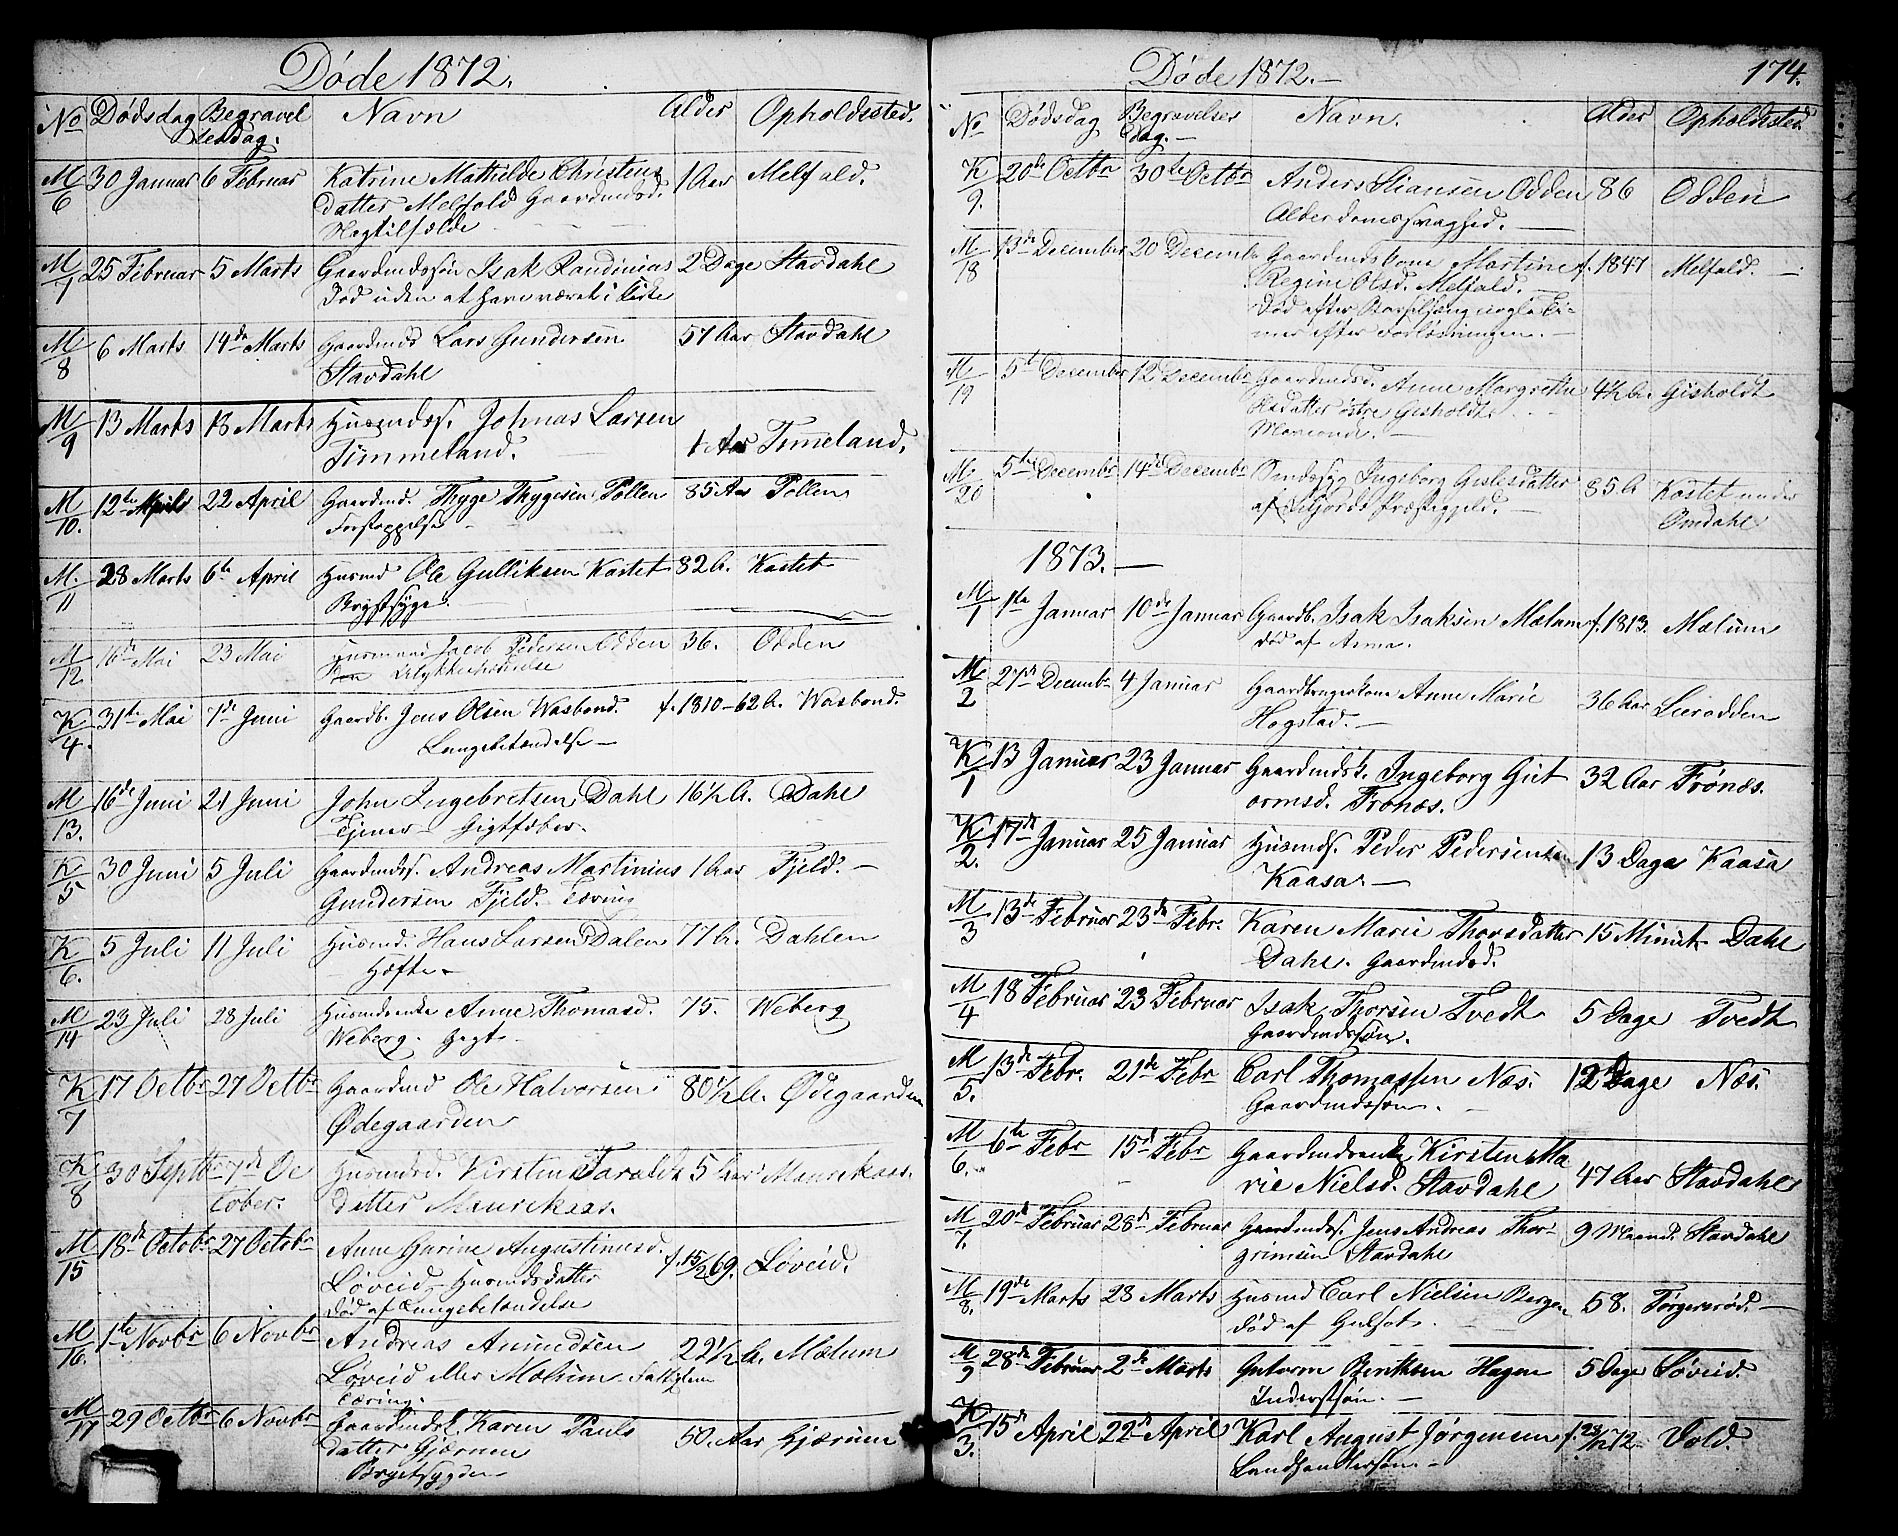 Døde 1872.
No Dødsdag Begravel Navn Alder Opholdssted.
sesdag.
M/6 30 Januar 6 Februar Katrine Mathilde Christens 1 Aar Melfald.
datter Melfald Gaardmdsd.
M/7 25 Februar 5 Marts Gaardmdssøn Isak Raudinias 2 Dage Stavdahl
Død uden at have været i Kirke
M/8 6 Marts 14de Marts Gaardmd Lars Gundersen 57 Aar Stavdahl
Stavdahl
M/9 13 Marts 18 Marts Husmdss. Johnas Larsen
Timmeland. 1 Aar Timeland.
M/10. 12te April 22 April Gaardmd. Thyge Thygesen Tollen 85 Aar Tollen
Forstoppelse
M./11 28 Marts 6te April Husmd Ole Gulliksen Kastet 82 A. Kastet
Brystsyge.
M/12 16de Mai 23 Mai Husmand Jacob Pedersen Odden 36. Odden
Ulykkehændelse
K/4. 31te Mai 7de Juni Gaardb. Jens Olsen Wasbond. f. 1810-62 A. Wasbond.
Lungebetændelse -
M/13. 16de Juni 21 Juni John Ingebretsen Dahl 16½ A. Dahl
Tjener - Gigtfeber.
K/5 30 Juni 5 Juli Gaardmdss. Andreas Martinius 1 Aar Fjeld. -
Gundersen Fjeld. Tæring
K/6. 5 Juli 11 Juli Husmd. Hans Larsen Dalen 77 A. Dahlen
Hæfte -
M/14 23 Juli 28 Juli Husmdenke Anne Thomasd. 75. Weberg
Weberg. Gigt -
K/7 17 Octbr 27 Octbr Gaardmd Ole Halvorsen 80½ A. Ødegaarden
Ødegaarden
K/8 30 Septbr 7de Oc Husmdsd. Kirstine Taralds 5 Aar Maurekaas.
tober. datter Maurekaas.
M/15 18de Octobr 27 Octobr Anne Gurine Augustinusd. f. 15/2 69. Løveid.
Løveid - Husmdsdatter
Død af Lungebetændelse
M/16. 1te Novbr 6 Novbr Andreas Amundsen 22½ A. Mælum
Løveid eller Mælum. Fattiglem
Tæring.
M/17 29 Octbr 6 Novbr Gaardmdsk. Karen Pauls 50. Aar Gjærum
datter Gjærum
Brystsyge
Døde 1872. - 174.
No Dødsdag Begravelses Navn. Alder Opholdssted
dag. -
K/9. 20de Octbr 30te Octbr Anders Stiansen Odden 86 Odden
Alderdomssvaghed. -
M/18 13de December 20 Decemb Gaardmandskone Martine f. 1847 Melfald. -
Regine Olsd. Melfald. -
Død efter Barselseng nogle Ti-
mer efter Forløsningen. -
M/19 5te December 12 Decembr Gaardmdsd. Anne Margrethe 4½ A. Gisholdt
Olsdatter østre Gisholdt
M/20 5te Decembr 14de Decembr Sindssyg Ingeborg Gulesdatter 85 A Kastet under
af Siljords Præstegjeld. - Omdahl
1873. -
M/1 1te Januar 10de Januar Gaardb. Isak Isaksen Mælum f. 1813. Mælum
død af Asma.
M/2 27de Decembr 4 Januar Gaardbrugerkone Anne Marie 36 Aar Lierodden
Hogstad. -
K/1 13 Januar 23 Januar Gaardmdsk. Ingeborg Gut 32 Aar Frönæs.
ormsd. Frønæs.
K/2. 17de Januar 25 Januar Husmds. Peder Pedersen 13 Dage Kaasa
Kaasa. -
M/3 13de Februar 23de Febr. Karen Marie Thorsdatter 15 Minut. Dahl
Dahl. Gaardmdsd.
M/4 18 Februar 23 Februar Isak Thorsen Tvedt 5 Dage Tvedt
Gaardmdssøn.
M/5. 13de Febr. 21de Febr Carl Thomassen Næs. 12 Dage Næs.
Gaardmdssøn. -
M/6. 6te Febr 15de Febr Gaardmdsenke Kirsten Ma
rie Nielsd. Stavdahl 47 Aar Stavdahl
M/7. 20de Februar 28de Februar Gaardmdss. Jens Andreas Thor- 9 Maand. Stavdahl
grimsen Stavdahl
M/8. 19de Marts 28 Marts Husmd Carl Nielsen Bergan 58. Torgersrød. -
død af Gulsot. -
M/9 28de Februar 2de Marts Gutorm Benthsen Hagen 5 Dage Løveid.
Inderstsøn. -
K/3. 15de April 22de April Karl August Jørgensen f. 23/12 72. Vold.
Landhandlersøn. -